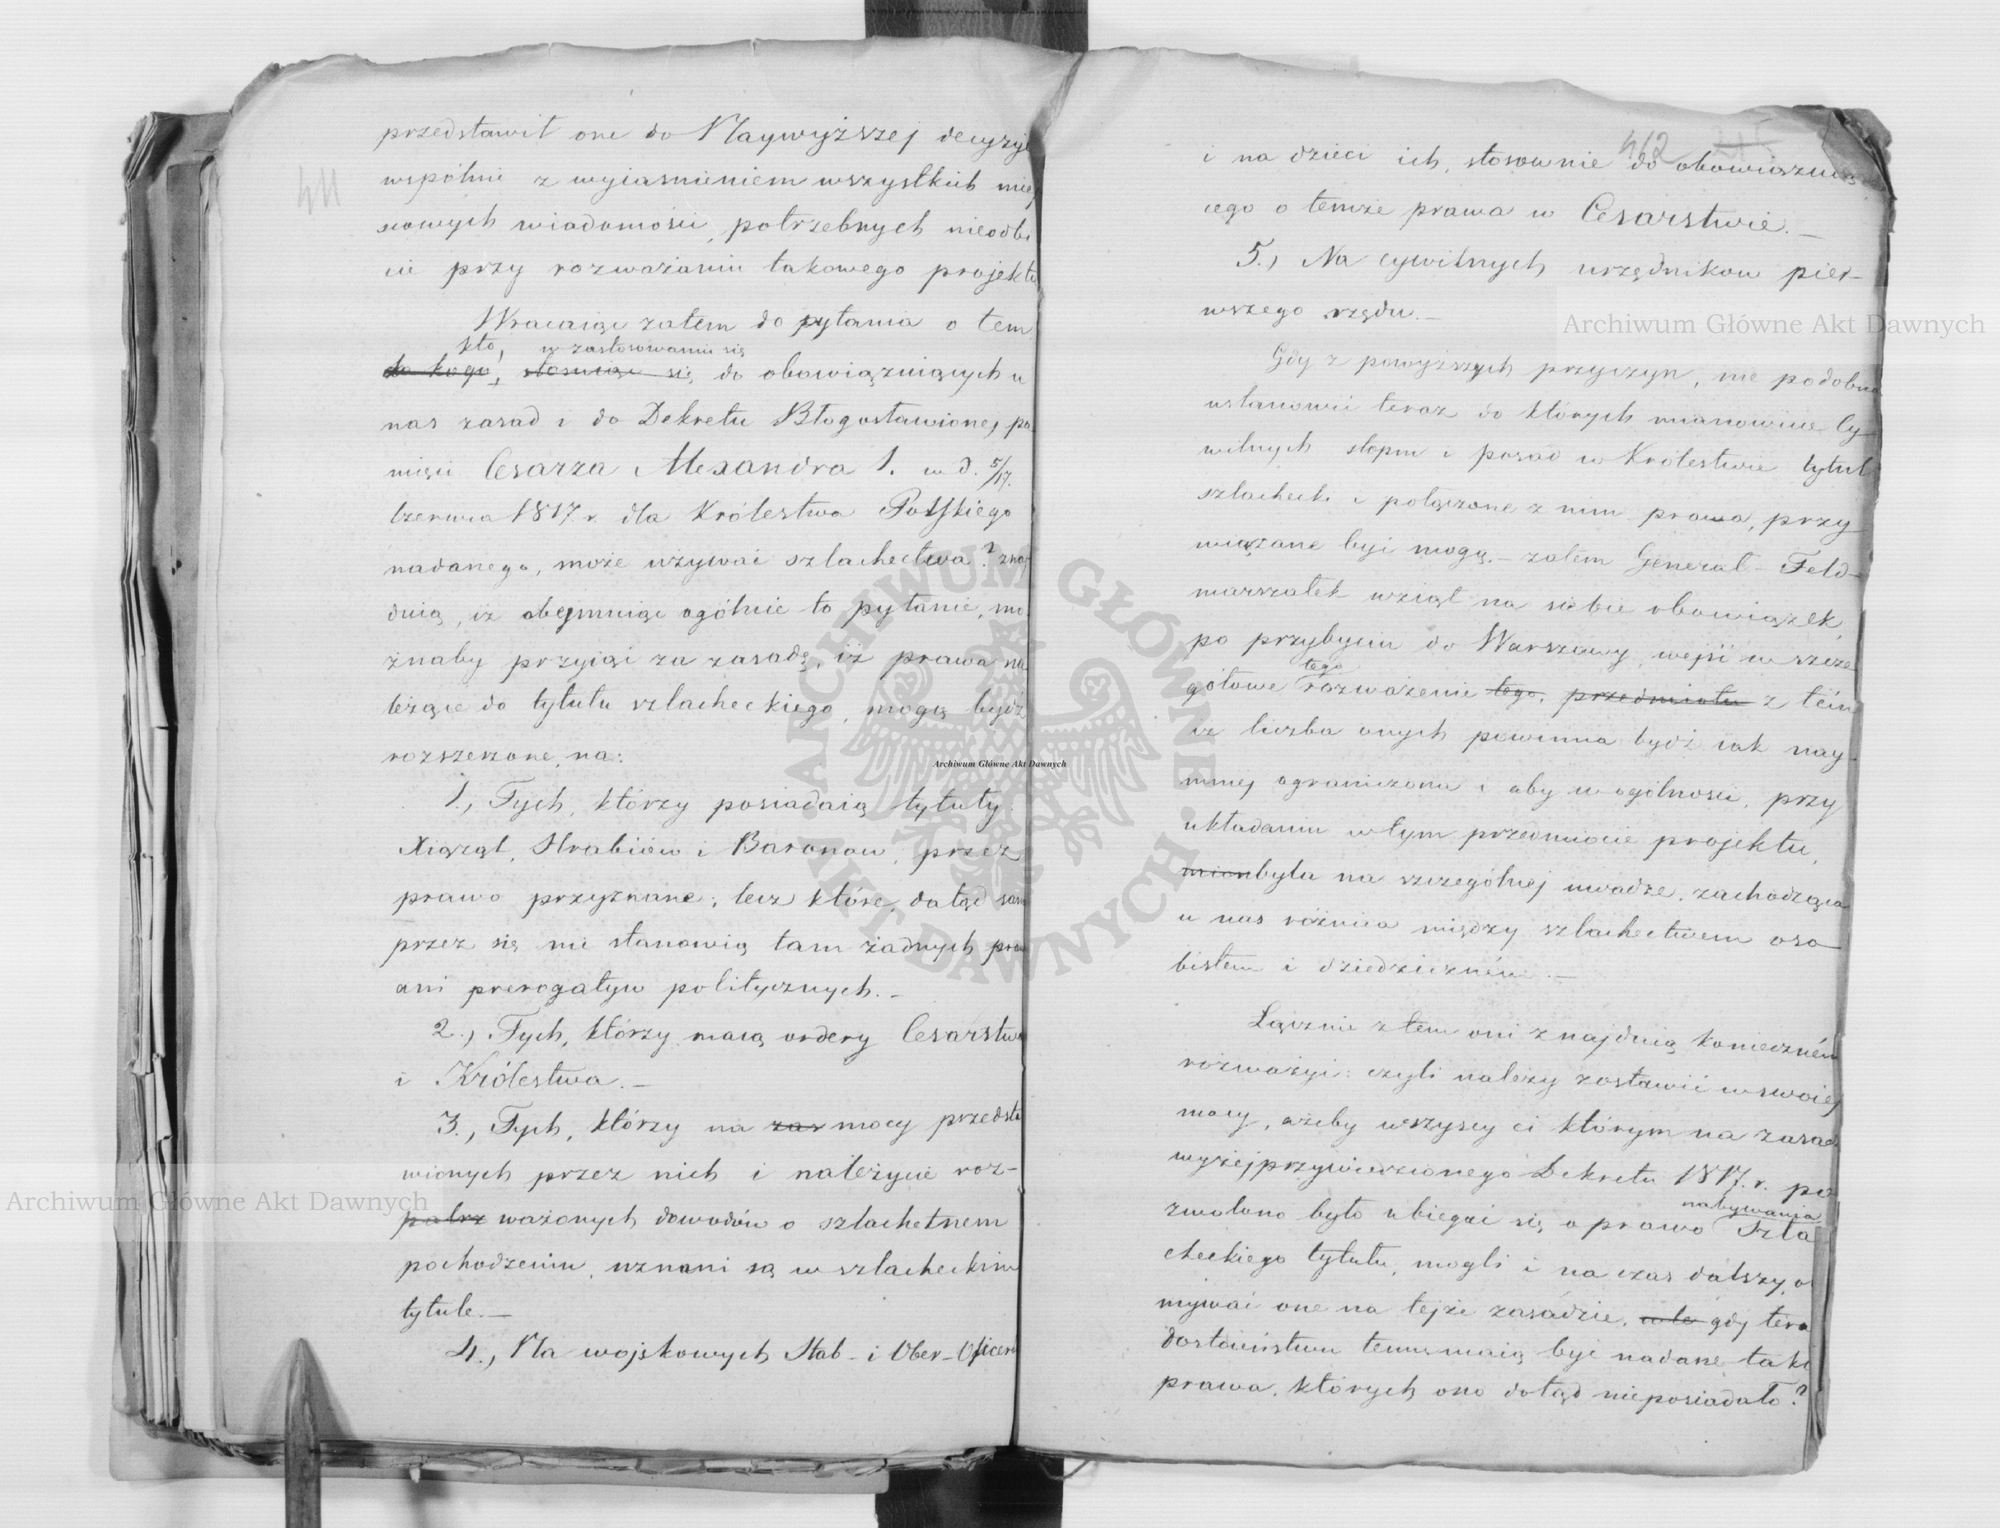 411
przedstawił one do Naywyższej decyzyi
wspólnie z wyiasnieniem wszystkich miey
scowych wiadomości, potrzebnych nieodbi
cie przy rozważaniu takowego projektu
Wracaiąc zatem do pytania o tem
kto, w zastosowaniu się
do kogo, stosuiąc się do obowiązuiących u
nas zasad i do Dekretu Błogosławionej pa
mięci Cesarza Alexandra 1. w d. 5/17.
Czerwca 1817 r. dla Królestwa Polskiego
nadanego, może używać szlachectwa? znay
duią, iż obejmuiąc ogólnie to pytanie, mo
żnaby przyiąć za zasadę, iż prawa na
leżące do tytułu szlacheckiego, mogą bydź
rozszerzone, na:
1., Tych, którzy posiadaią tytuły
Xiążąt, Hrabiów i Baronow, przez
prawo przyznane, lecz które, dotąd same
przez się nie stanowią tam żadnych praw
ani prerogatyw politycznych. –
2., Tych, którzy maią ordery Cesarstwa
i Królestwa. –
3., Tych, którzy na zas mocy przedsta
wionych przez nich i należycie roz-
patrz ważonych dowodów o szlachetnem
pochodzeniu, uznani są w szlacheckim
tytule. –
4., Na wojskowych Stab- i Ober-Oficerów
412
i na dzieci ich, stosownie do obowiązuią
cego o temże prawa w Cesarstwie. –
5., Na cywilnych urzędnikow pier-
wszego rzędu. –
Gdy z powyższych przyczyn, nie podobna
ustanowić teraz do których mianowicie Cy
wilnych stopni i posad w Królestwie tytuł
szlachecki i połączone z nim prawa, przy
wiązane być mogą. – zatem Generał-Feld-
marszałek wziął na siebie obowiązek,
po przybyciu do Warszawy, wejść w szcze
tego
gółowe rozważenie tego, przedmiotu z tém
iż liczba onych powinna bydź iak nay-
mniej ograniczona i aby w ogólności, przy
układaniu w tym przedmiocie projektu,
mian była na szczególnej uwadze, zachodząca
u nas różnica między szlachectwem oso
bistem i dziedziczném. –
Łącznie z tem oni znajduią konieczném
rozważyć: czyli należy zostawić w swoiej
mocy, ażeby wszyscy ci którym na zasadzie
wyżej przywiedzionego Dekretu 1817. r. po
zwolono było ubiegać się o prawo nabywania Szla
checkiego tytułu, mogli i na czas dalszy, o
trzymywać one na tejże zasadzie, wte gdy teraz
dostoieństwu temu maią być nadane takie
prawa, których ono dotąd nieposiadało?
Archiwum Główne Akt Dawnych
Archiwum Główne Akt Dawnych
Archiwum Główne Akt Dawnych
ARCHIWUM GŁÓWNE AKT DAWNYCH